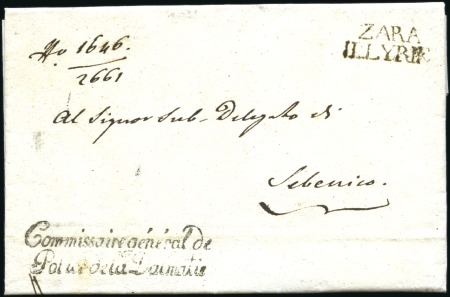 No 1646
2661
ZARA
ILLYRIE
Al Signor Sub-Delegato di
Sebenico.
Commissaire général de
Police de la Dalmatie